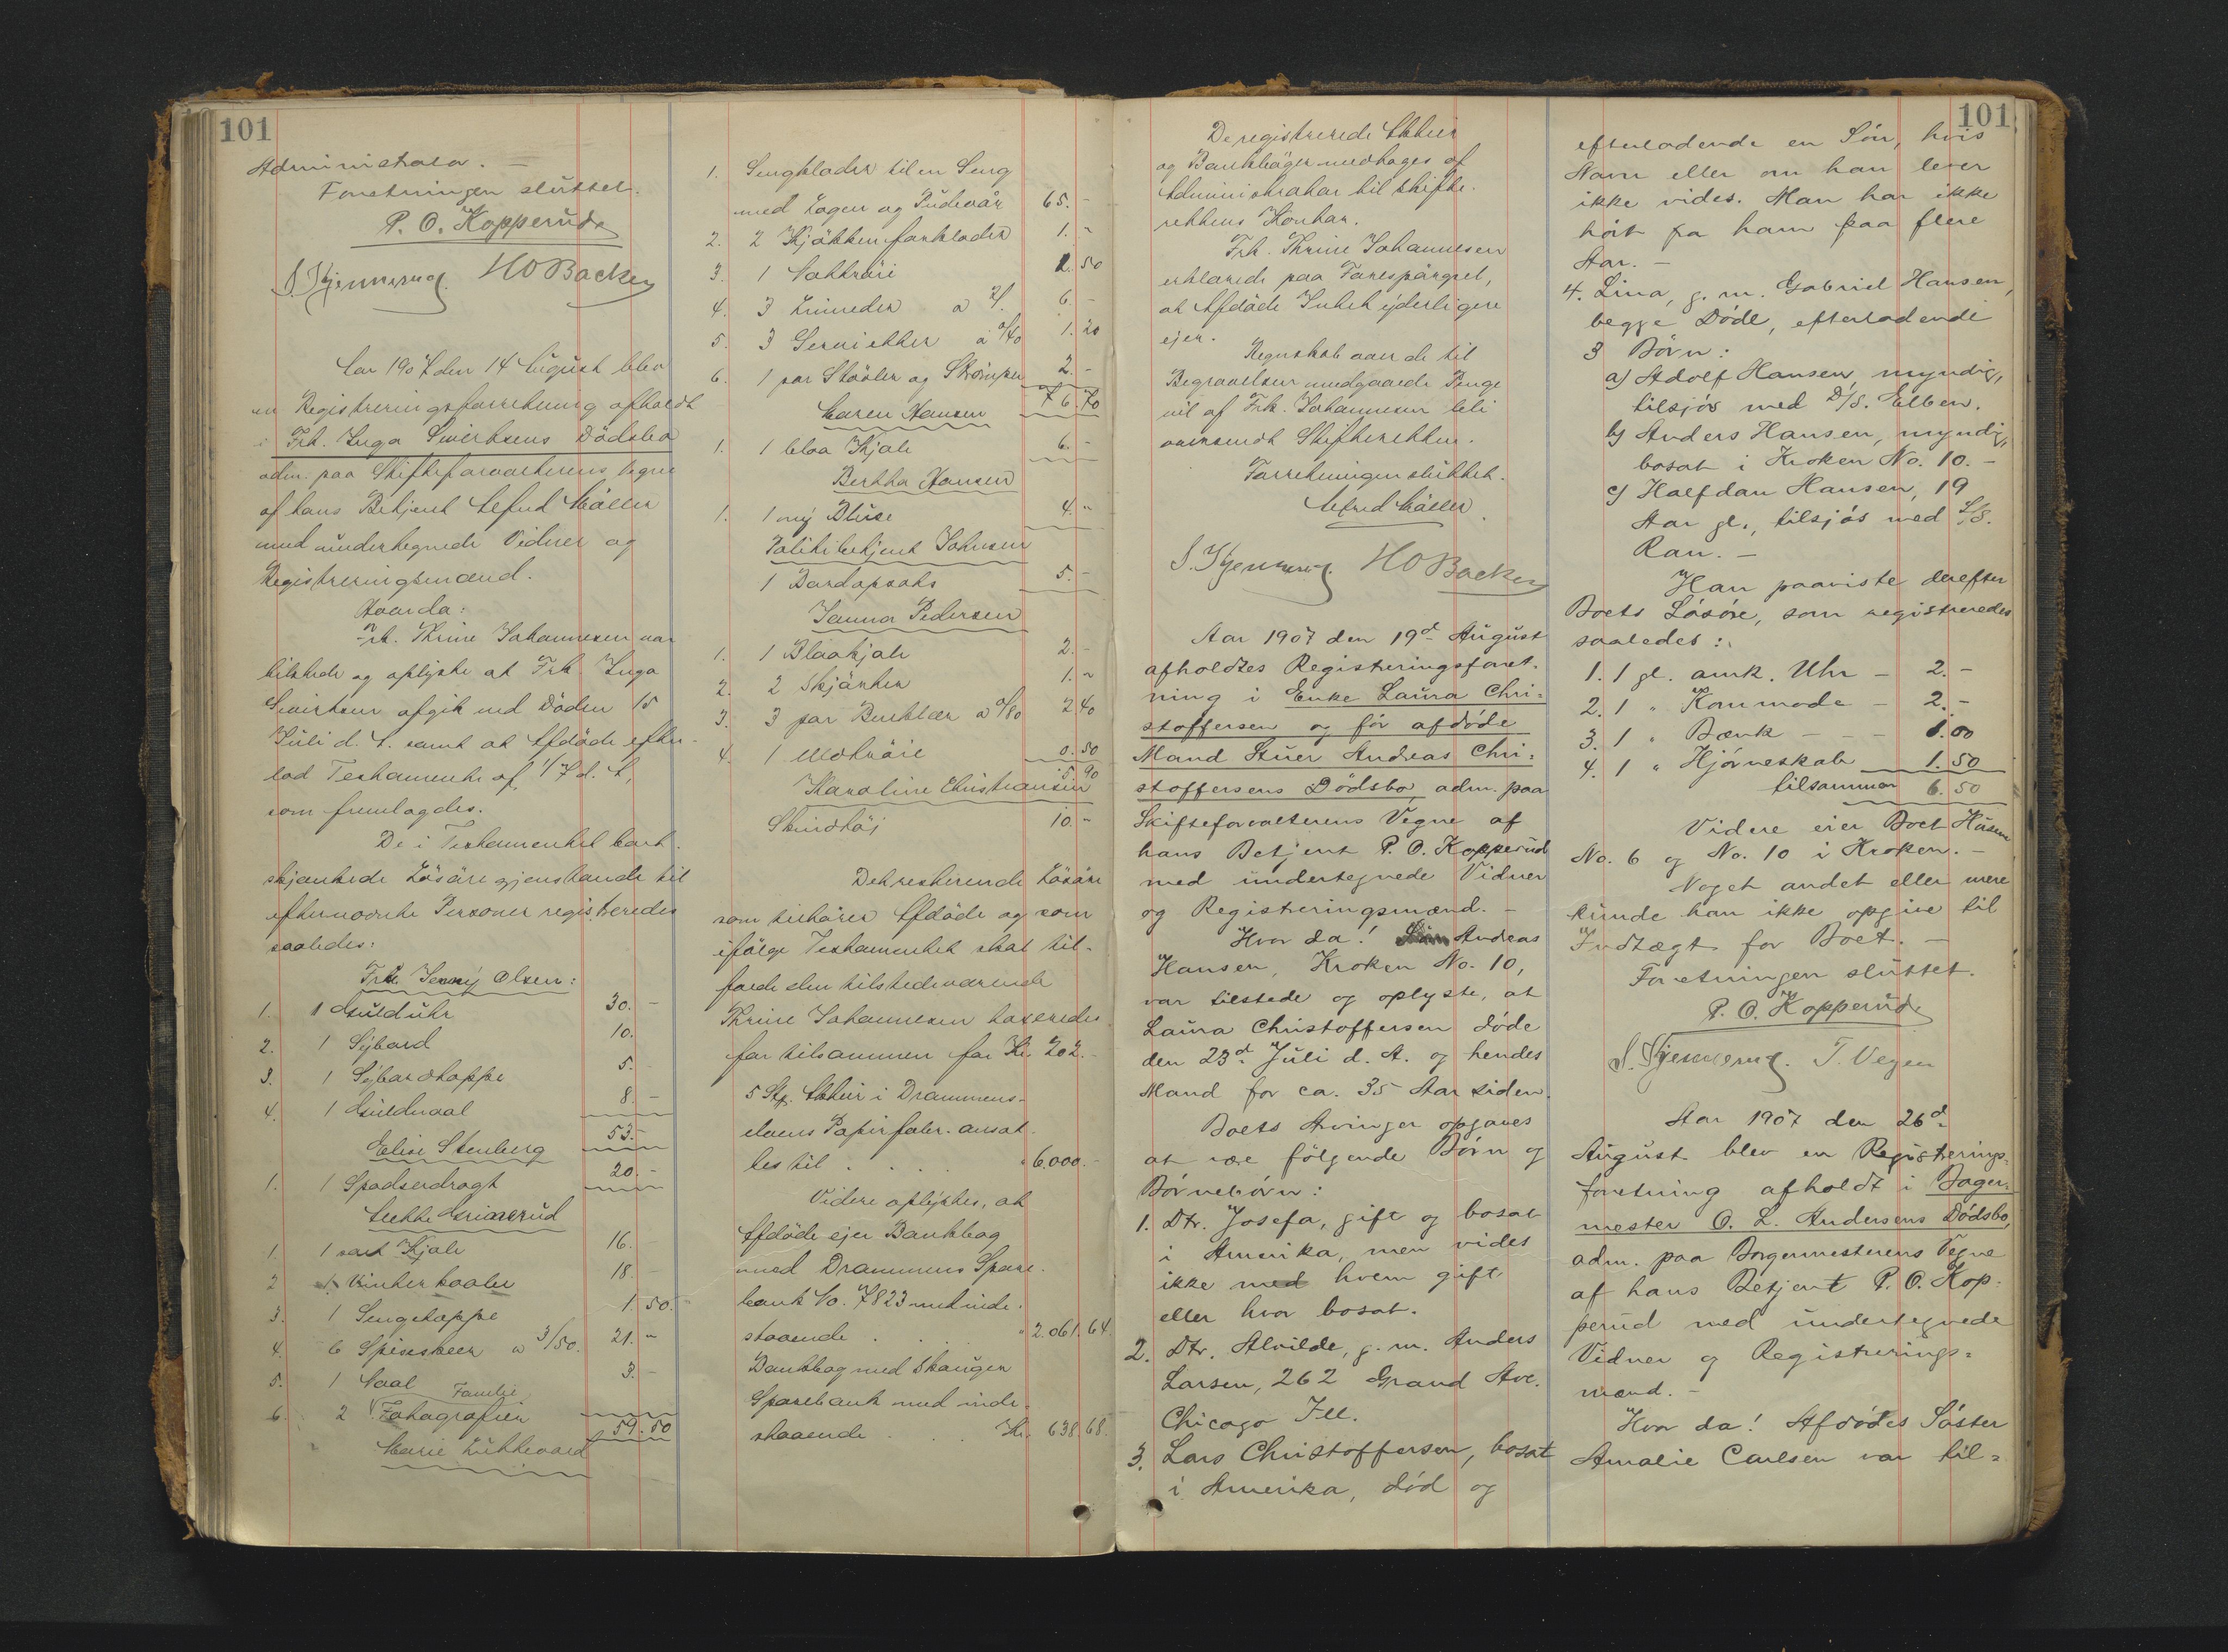 101
Administrator. —
Forretningen sluttet.
P. O. Kopperud
S. Gjennerud. H O Backen
Aar 1907 den 14 August blev
en Registreringsforretning afholdt
i Frk. Inga Sivertsens Dödsbo
adm. paa Skifteforvalterens Vegne
af hans Betjent Alfred Möller
med undertegnede Vidner og
Registreringsmænd.
Hvorda:
Frk. Thrine Johannesen var
tilstede og oplyste at Frk. Inga
Sivertsen afgik ved Döden 15
Juli d. A. samt at Afdöde efter-
lod Testamente af 1/7 d. A,
som fremlagdes.
De i Testamentet bort-
skjænkede Lösöregjenstande til
efternævnte Personer registreredes
saaledes:
Frk. Jenny Olsen:
1. 1 Gulduhr 30. -
2. 1 Sybord 10.
3. 1 Sybordtæppe 5. -
4. 1 Guldnaal 8. -
53. -
Elise Stenberg
1. 1 Spadserdragt 20. -
Grimsrud
1. 1 sort Kjole 16. -
2 1 Vinterkaabe 18. -
3. 1 Sengetæppe 1. 50.
4. 6 Spiseskeer a 3/50. 21. "
5. 1 Naal 3. -
6. 2 Familie Fotografier
59. 50
Marie Lükkevard
1. Sengklæder til en Seng
med Lagen og Pudevår 65. -
2. 2 Kjökkenforklæder 1. "
3. 1 Nattröie 1. 50
4. 3 Linneder a 2/. 6. -
5. 3 Servietter a "/40 1. 20
6. 1 par Stövler og Strömper 2. -
76. 70
Maren Hansen
1. 1 blaa Kjole 6. -
Bertha Hansen
1. 1 ny Bluse 4. "
Politibetjent Johnsen
1 Bordopsats 5. -
Janna Pedersen
1. 1 Blaakjole 2. -
2. 2 Skjörter 1. "
3. 3 par Benklær a "/80 2 40
4. 1 Uldtröie 0. 50
5. 90
Karoline Christiansen
Skindtöi 10. "
Det resterende Lösöre
som tilhörer Afdöde og som
ifölge Testamentet skal til-
falde den tilstedeværende
Thrine Johannesen taxeredes
for tilsammen for Kr. 202. -
5 Stk. Aktier i Drammens-
elvens Papirfabr. ansat
tes til . . . " 6.000. -
Videre oplystes, at
Afdöde ejer Bankbog
med Drammens Spare-
bank No. 7823 med inde-
staaende . . " 2.061. 64.
Bankbog med Skauger
Sparebank med inde-
staaende . . . Kr. 638. 68.
101
De registrerede Aktier
og Bankböger medtoges af
Administrator til Skifte-
rettens Kontor.
Frk. Thrine Johannesen
erklærede paa Forespörgsel,
at Afdöde Intet yderligere
ejer.
Regnskab over de til
Begravelsen medgaaede Penge
vil af Frk. Johannesen bli
oversendt Skifteretten.
Forretningen sluttet.
Alfred Möller
S. Gjennerud. H O Backen
Aar 1907 den 19d August
afholdtes Registreringsforret-
ning i Enke Laura Chri=
stoffersen og før afdøde
Mand Stuer Andreas Chri=
stoffersens Dødsbo, adm. paa
Skifteforvalterens Vegne af
hans Betjent P. O. Kopperud
med undertegnede Vidner
og Registreringsmænd. —
Hvor da! Andreas
Hansen, Kroken No. 10,
var tilstede og oplyste, at
Laura Christoffersen døde
den 23d Juli d. A. og hendes
Mand for ca. 35 Aar siden.
Boets Arvinger opgaves
at være følgende Børn og
Børnebørn:
1. Dtr. Josefa, gift og bosat
i Amerika, men vides
ikke med hvem gift
eller hvor bosat.
2. Dtr. Alvilde, g. m. Anders
Larsen, 262 Grand Ave.
Chicago Ill.
3. Lars Christoffersen, bosat
i Amerika, død og
efterladende en Søn, hvis
Navn eller om han lever
ikke vides. Man har ikke
hørt fra ham paa flere
Aar. —
4. Lina, g. m. Gabriel Hansen,
begge Døde, efterladende
3 Børn:
a) Adolf Hansen, myndig,
tilsjøs med D/S. Elben.
b) Anders Hansen, myndig,
bosat i Kroken No. 10. —
c) Halfdan Hansen, 19
Aar gl., tilsjøs med S/S.
Ran. —
Han paaviste derefter
Boets Løsøre, som registreredes
saaledes:
1. 1 gl. amk. Uhr — 2. -
2. 1 " Kommode — 2. -
3. 1 " Bænk — — — 1. 00
4. 1 " Hjørneskab 1. 50
tilsammen 6. 50
Videre eier Boet Husene
No. 6 og No. 10 i Kroken. —
Noget andet eller mere
kunde han ikke opgive til
Indtægt for Boet. —
Forretningen sluttet.
P. O. Kopperud
S. Gjennerud. T. Vegen
Aar 1907 den 26d
August blev en Registrerings=
forretning afholdt i Bager=
mester O. L. Andersens Dødsbo,
adm. paa Borgermesterens Vegne
af hans Betjent P. O. Kop-
perud med undertegnede
Vidner og Registrerings=
mænd. —
Hvor da! Afdødes Søster
Amalie Carlsen var til=